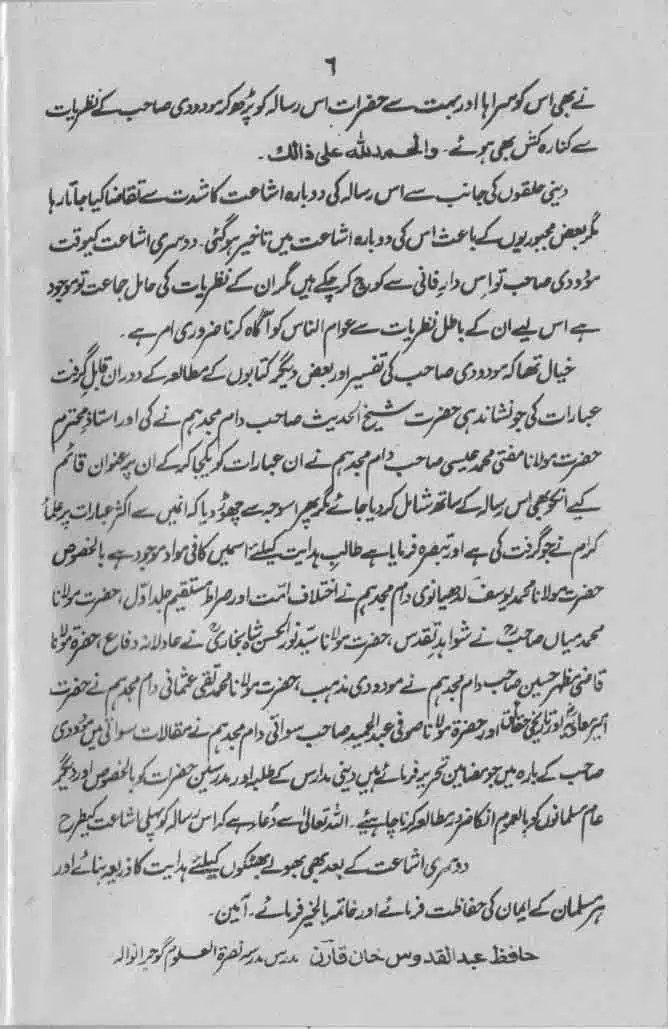 ٦
نے بھی اس کو سراہا اور بہت سے حضرات اس رسالہ کو پڑھ کر مودودی صاحب کے نظریات
سے کنارہ کش بھی ہوئے۔ والحمد للہ علی ذالک۔
دینی حلقوں کی جانب سے اس رسالہ کی دوبارہ اشاعت کا شدت سے تقاضا کیا جاتا رہا
مگر بعض مجبوریوں کے باعث اس کی دوبارہ اشاعت میں تاخیر ہو گئی۔ دوسری اشاعت کیوقت
مودودی صاحب تو اس دارِ فانی سے کوچ کر چکے ہیں مگر ان کے نظریات کی حامل جماعت تو موجود
ہے اس لیے ان کے باطل نظریات سے عوام الناس کو آگاہ کرنا ضروری امر ہے۔
خیال تھا کہ مودودی صاحب کی تفسیر اور بعض دیگر کتابوں کے مطالعہ کے دوران قابلِ گرفت
عبارات کی جو نشاندہی حضرت شیخ الحدیث صاحب دام مجدہم نے کی اور استاذ محترم
حضرت مولانا مفتی محمد عیسیٰ صاحب دام مجدہم نے ان عبارات کو یکجا کر کے ان پر عنوان قائم
کیے انکو بھی اس رسالہ کے ساتھ شامل کر دیا جائے مگر پھر اسوجہ سے چھوڑ دیا کہ انمیں سے اکثر عبارات پر علماء
کرام نے جو گرفت کی ہے اور تبصرہ فرمایا ہے طالبِ ہدایت کیلئے اسمیں کافی مواد موجود ہے بالخصوص
حضرت مولانا محمد یوسف لدھیانوی دام مجدہم نے اختلاف امت اور صراط مستقیم جلد اوّل، حضرت مولانا
محمد میاں صاحبؒ نے شواہد تقدس، حضرت مولانا سیّد نور الحسن شاہ بخاریؒ نے عادلانہ دفاع، حضرۃ مولانا
قاضی مظہر حسین صاحب دام مجدہم نے مودودی مذہب، حضرت مولانا محمد تقی عثمانی دام مجدہم نے حضرت
امیر معاویہؓ اور تاریخی حقائق اور حضرۃ مولانا صوفی عبد الحمید صاحب سواتی دام مجدہم نے مقالات سواتی میں مودودی
صاحب کے بارہ میں جو مضامین تحریر فرمائے ہیں دینی مدارس کے طلبہ اور مدرسین حضرات کو بالخصوص اور دیگر
عام مسلمانوں کو بالعموم انکا ضرور مطالعہ کرنا چاہیئے۔ اللہ تعالیٰ سے دُعا ہے کہ اس رسالہ کو پہلی اشاعت کیطرح
دوسری اشاعت کے بعد بھی بھولے بھٹکوں کیلئے ہدایت کا ذریعہ بنائے اور
ہر مسلمان کے ایمان کی حفاظت فرمائے اور خاتمہ بالخیر فرمائے۔ آمین۔
حافظ عبدالقدوس خان قارن مدرس مدرسہ نصرۃ العلوم گوجرانوالہ